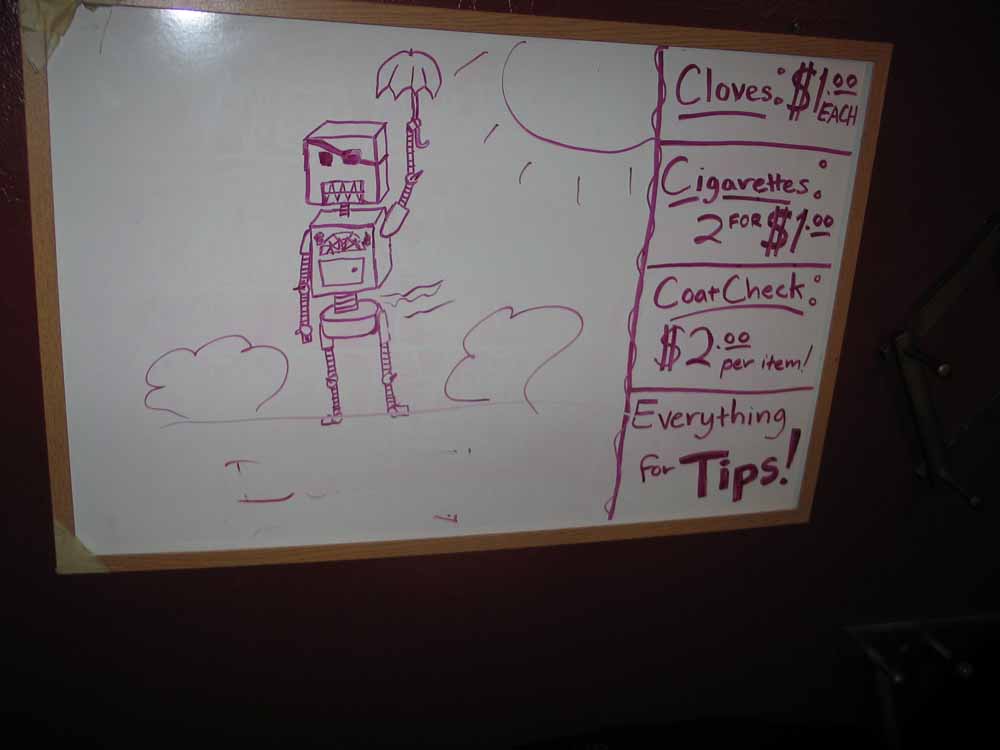 Cloves: $1.00
EACH
Cigarettes:
2 FOR $1.00
Coat Check:
$2.00
per item!
Everything
for Tips!